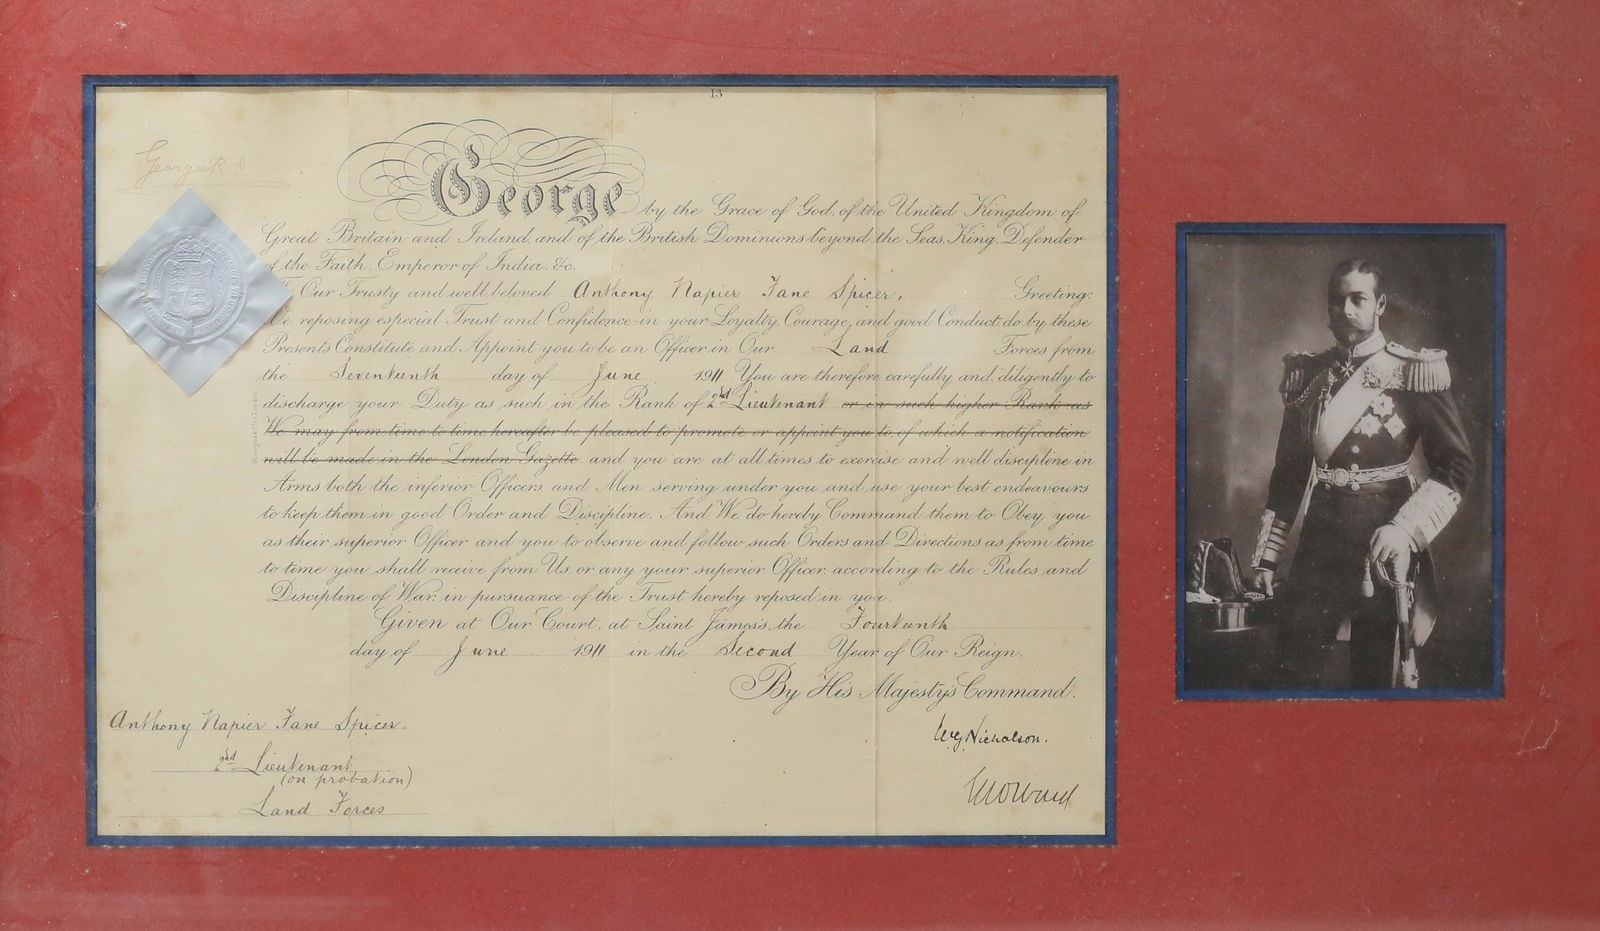 13
George R. I
George by the Grace of God, of the United Kingdom of
Great Britain and Ireland, and of the British Dominions beyond the Seas, King, Defender
of the Faith, Emperor of India, &c.
Our Trusty and well beloved Anthony Napier Fane Spicer, Greeting:
We, reposing especial Trust and Confidence in your Loyalty, Courage, and good Conduct, do by these
Presents Constitute and Appoint you to be an Officer in Our Land Forces from
the Seventeenth day of June 1911. You are therefore carefully and diligently to
discharge your Duty as such in the Rank of 2nd Lieutenant or in such higher Rank as
We may from time to time hereafter be pleased to promote or appoint you to, of which a notification
will be made in the London Gazette, and you are at all times to exercise and well discipline in
Arms both the inferior Officers and Men serving under you and use your best endeavours
to keep them in good Order and Discipline. And We do hereby Command them to Obey you
as their superior Officer and you to observe and follow such Orders and Directions as from time
to time you shall receive from Us, or any your superior Officer, according to the Rules and
Discipline of War, in pursuance of the Trust hereby reposed in you.
Given at Our Court, at Saint James's, the Fourteenth
day of June 1911 in the Second Year of Our Reign.
By His Majesty's Command.
Anthony Napier Fane Spicer.
2nd Lieutenant
(on probation)
Land Forces
W.G. Nicholson.